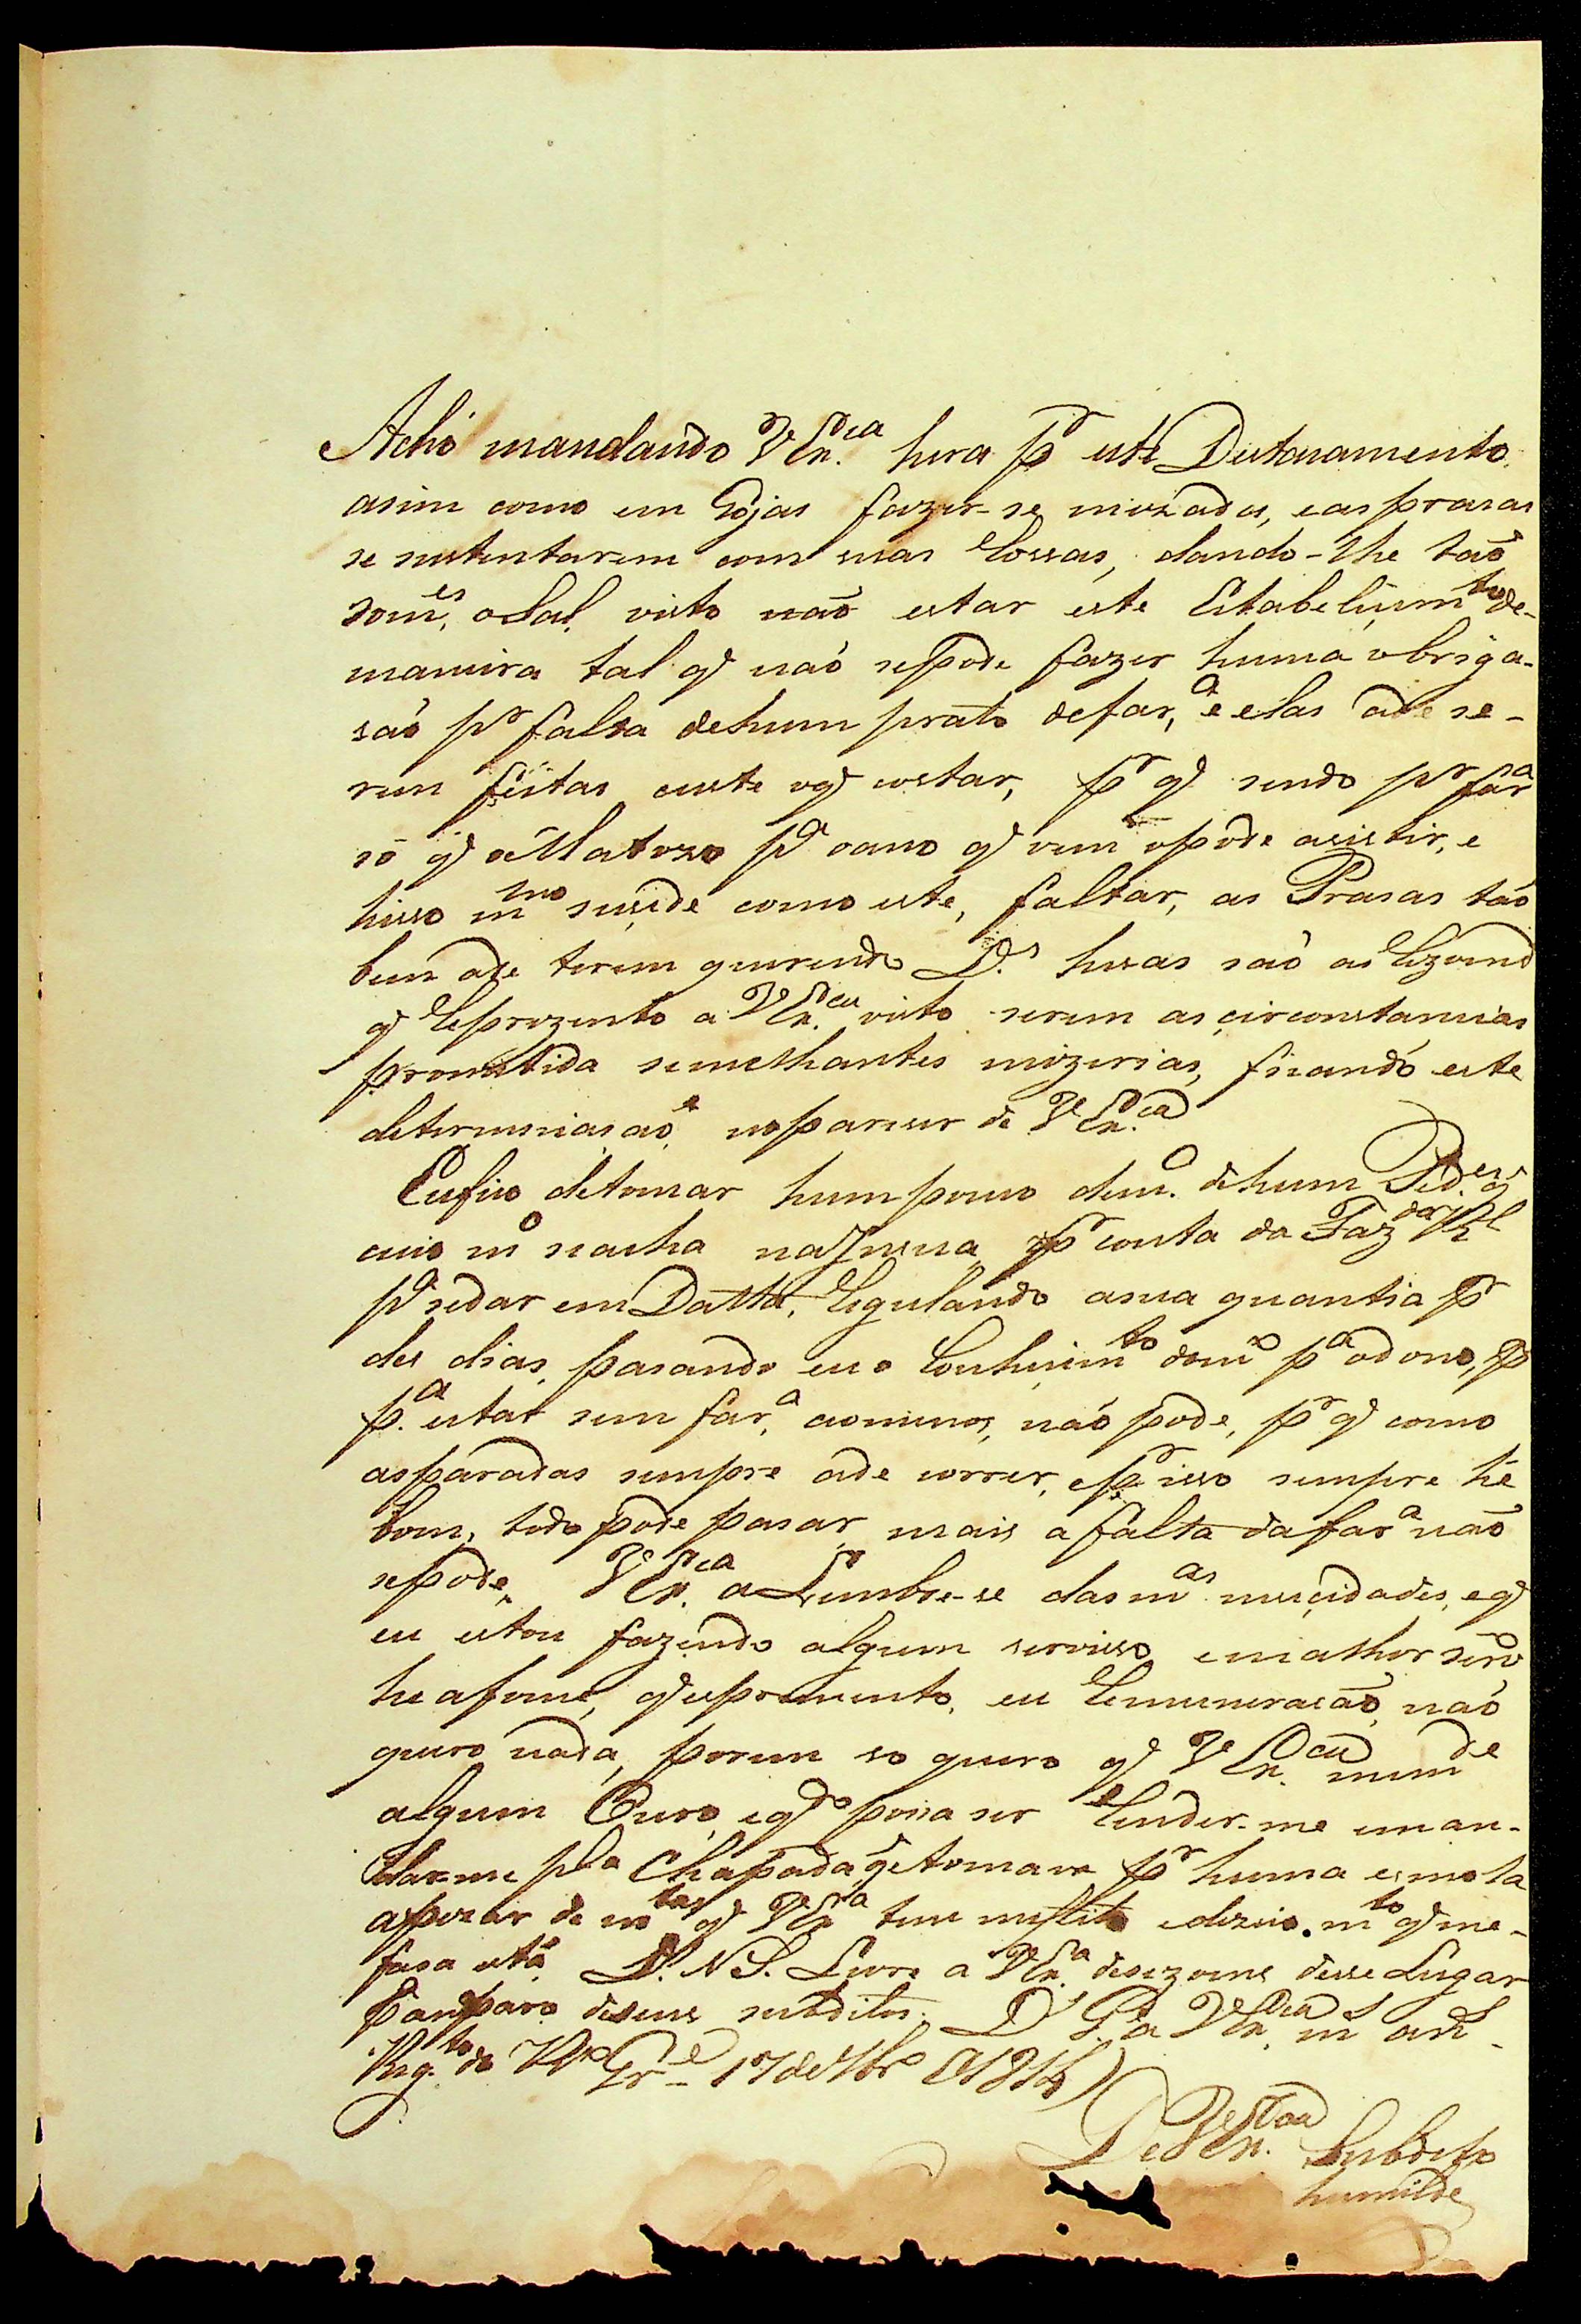 Achó mandando V Ex.cia hera pr este Destacamento,
asim como em Gojas fazer-se mizadas, e as prasas
se sustentarem com suas Rossas, dando-lhe taó
som.es, o Sal, visto naó estar este Estabelisimto de-
maneira tal q̃ naó sepode fazer huma obriga-
saó pr falta dehum prato defar,a e elas ade se-
rem feitas custe oq̃ costar, pr q̃ sendo pr fara
só q̃ a Matozo pa oano q̃ vem opode asistir, e
hisso mmo suside como este, faltar, as Prasas taó
bem ade terem querendo D.s hesas saó as Rezoens
q̃ Reprezento a V Ex.cia visto serem as circonstancias
prometida semelhantes mizerias, ficando este
determinasaó, no pareser de V Ex.cia
Eufico detomar hum pouco demo. dehum Ped.es q̃
aqui mo seacha pr conta da Fazda Rl
pa sedar em Datta, Regulando asua quantia pr
des dias, pasando eu o Conhesimto domo pa odono, pr
p.a estar sem far,a aomenos, naó pode, pr q̃ como
asparadas sempre ade correr, e pr isso sempre hé
bom, todo pode pasar, mais a falta dafara naó
sepode, V Ex.cia a Lembre-se das mas nesçidades, e q̃
eu estou fazendo algum servisso, emalhor
he afome, q̃ espremento, eu Remunerasaó, naó
quero nada, porem so quero q̃ V Ex.cia memde
algum Ouro, e qdo posa ser Render-me eman-
darme pla Chapada, q̃etomara pr huma esmola
apezar de mtas q̃ V Exa tem mefeito edezeio. mto q̃ me-
fasa esta, D. N S. Livre a V Ex.a desezoens desse Lugar
Pamparo deseus subditos. D.s G.e a V Ex.cia ms ans
Reg.to do Ro Gr.e 17 de 7bro 1814
De V Ex.cia Subdito
humilde